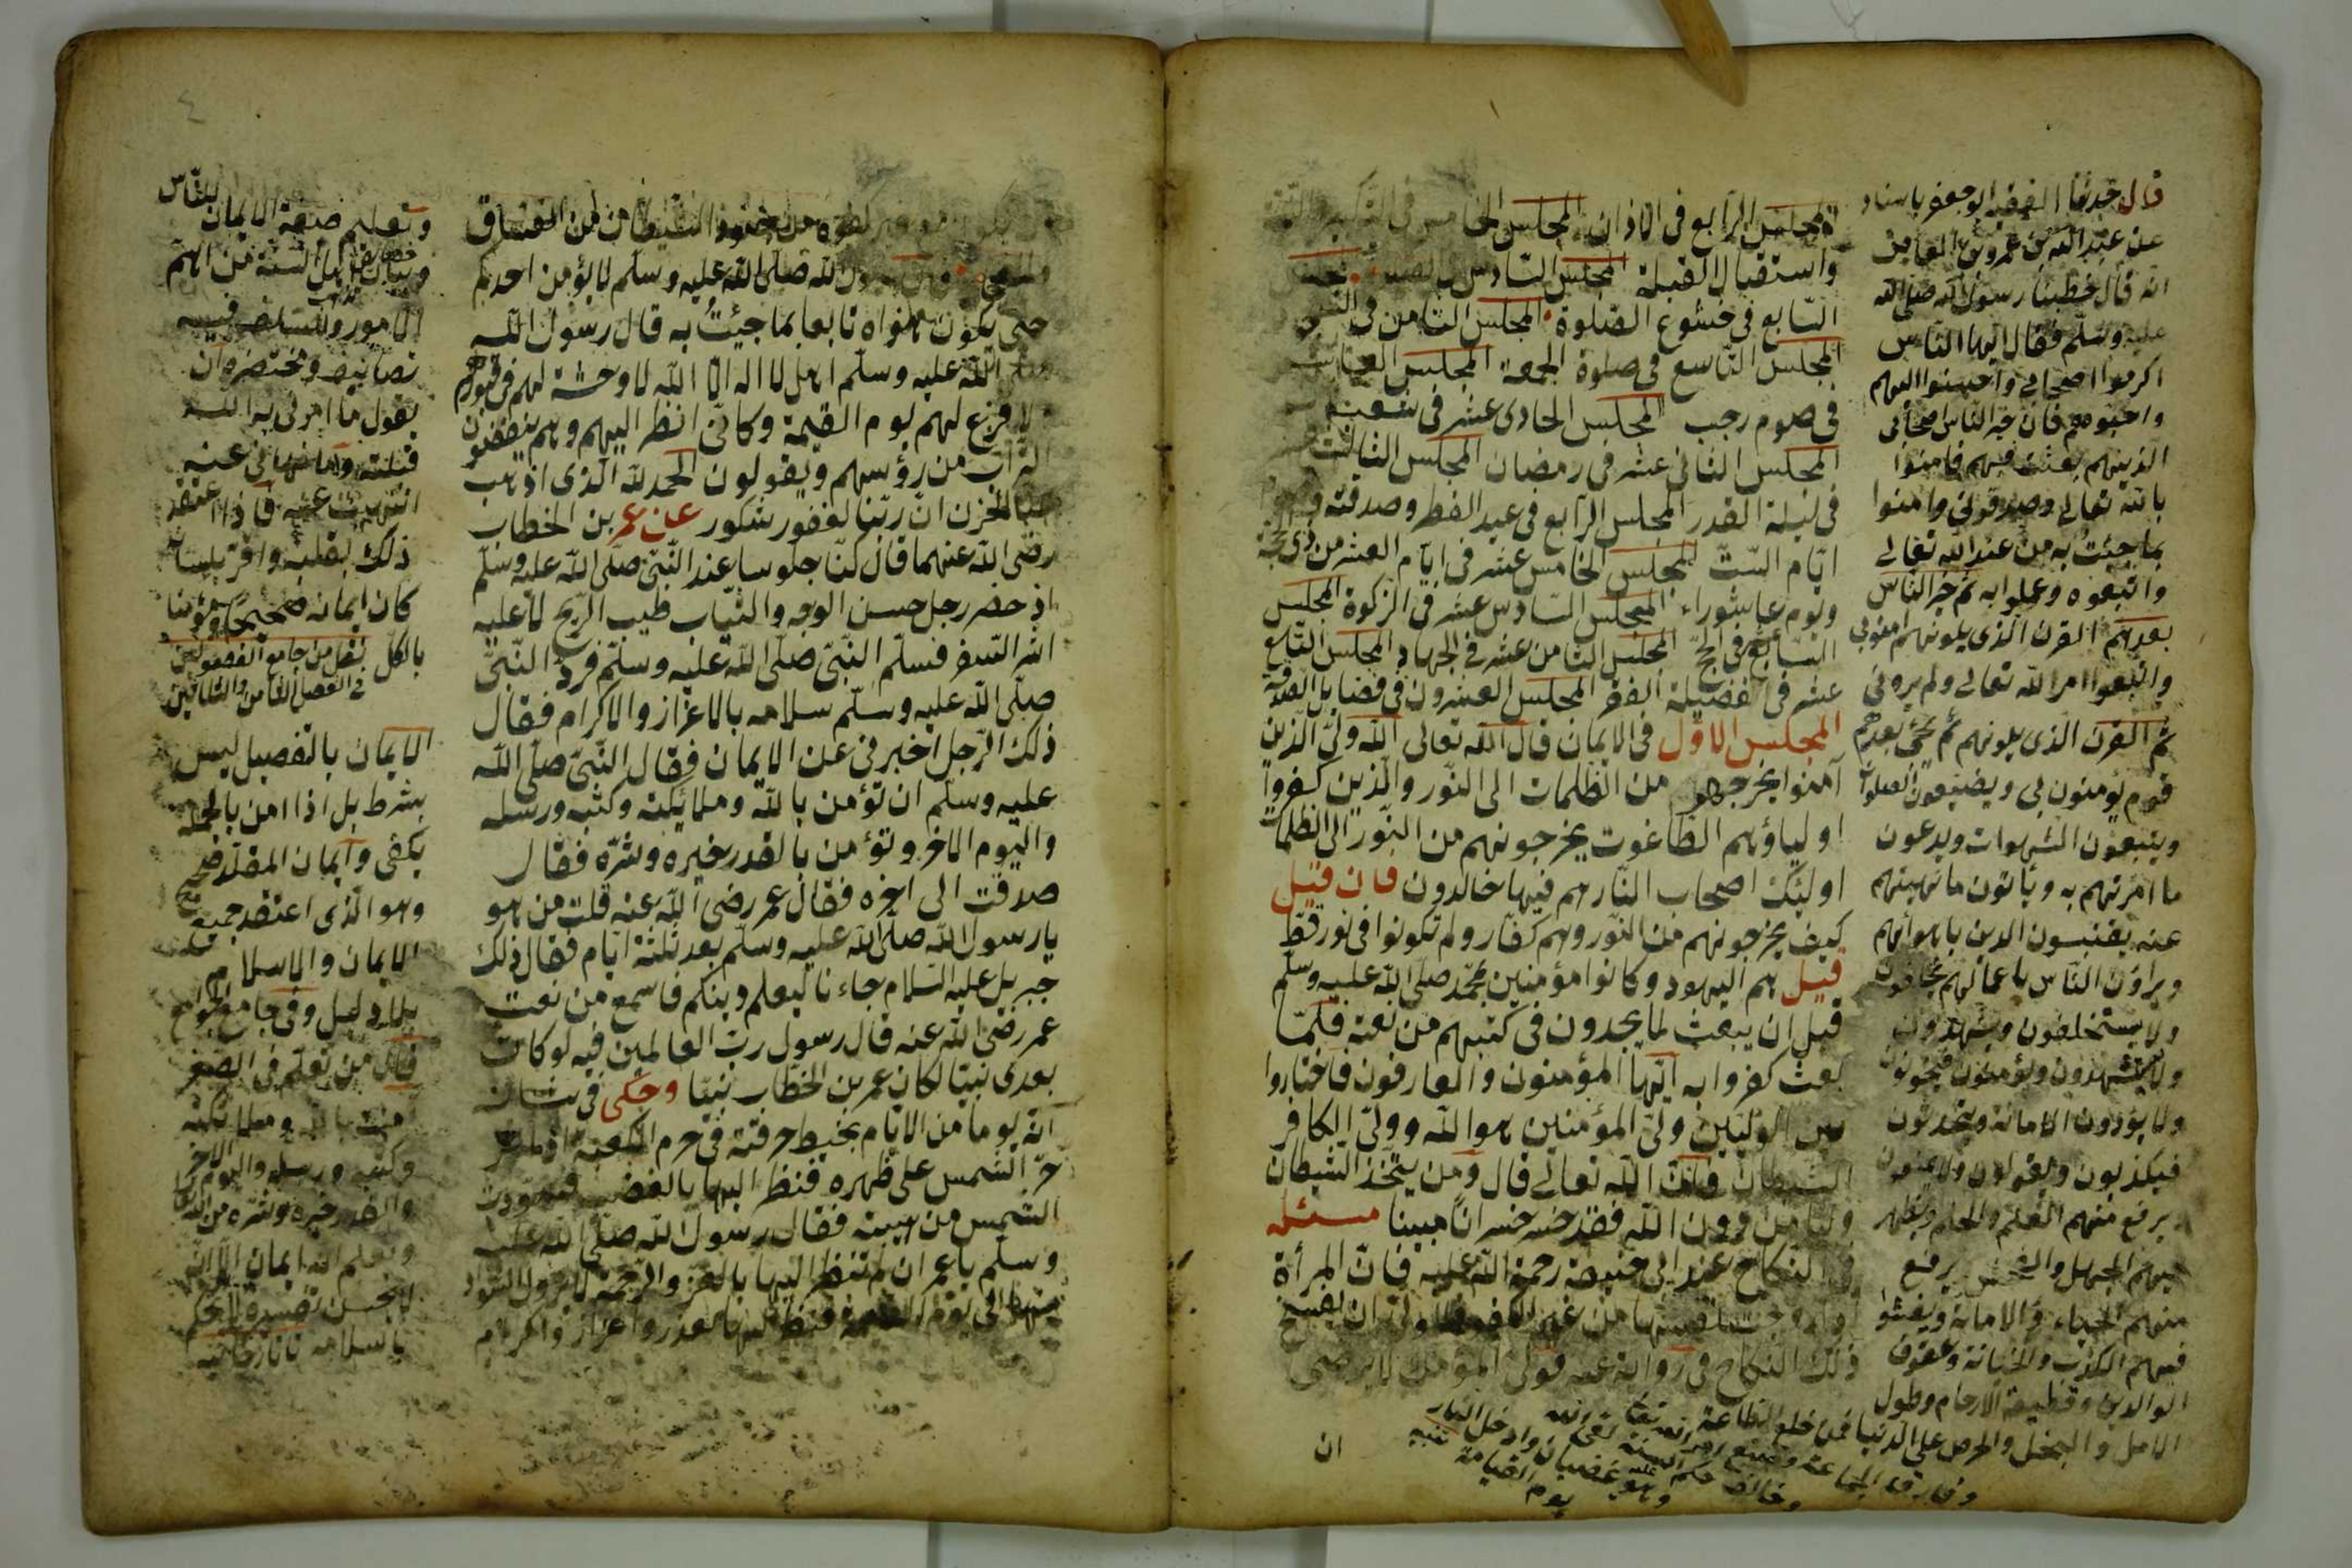 المجلس الرابع في الاذان المجلس الخامس في التكبير
واستقبال القبلة المجلس السادس
السابع في خشوع الصلوة المجلس الثامن في
المجلس التاسع في صلوة الجمعة المجلس
في صوم رجب المجلس الحادى عشر في شعبان
المجلس الثاني عشر في رمضان المجلس الثالث
في ليلة القدر المجلس الرابع في عيد الفطر وصدقته و
ايام الستّ المجلس الخامس عشر في ايام العشر من ذي الحجة
ويوم عاشوراء المجلس السادس عشر في الزكوة المجلس
السابع في الحج المجلس الثامن عشر في الجهاد المجلس التاسع
عشر في فضيلة الفقر المجلس العشرون في فضايل الصدقة
المجلس الاول في الايمان قال الله تعالى الله ولىّ الذين
آمنوا يخرجهم من الظلمات الى النور والذين كفروا
اولياؤهم الطاغوت يخرجونهم من النور الى الظلمات
اولئك اصحاب النار هم فيها خالدون فان قيل
كيف يخرجونهم من النور وهم كفار ولم تكونوا في نور قطّ
قيل هم اليهود وكانوا مؤمنين بمحمد صلى الله عليه وسلم
قبل ان يبعث لما يجدون في كتبهم من نعته فلمّا
بعث كفروا به ايّها المؤمنون والعارفون فاختاروا
بين الوليّين ولىّ المؤمنين هو الله وولىّ الكافر
الشيطان فانّ الله تعالى قال ومن يتخذ الشيطان
وليا من دون الله فقد خسر خسرانا مبينا مسئله
في النكاح عند ابى حنيفة رحمة الله عليه فان المرأة
ذلك النكاح في رواية عنه
ان
قال حدثنا الفقيه ابو جعفر باسناده
عن عبد الله بن عمرو بن العاص
انه قال خطبنا رسول الله صلى الله
عليه وسلم فقال ايّها الناس
اكرموا اصحابي واحسنوا اليهم
واحبوهم فان خير الناس اصحابى
الذين هم بعثت فيهم فامنوا
بالله تعالى وصدقوني وامنوا
بما جئت به من عند الله تعالى
واتبعوه وعملوا به ثم خير الناس
بعدهم القرن الذى يلونهم امنوا بى
واتبعوا امر الله تعالى ولم يرونى
ثم القرن الذى يلونهم ثم يجئ بعدهم
قوم يؤمنون بى ويضيعون الصلوات
ويتبعون الشهوات ويدعون
ما امرتهم به ويأتون ما نهيتهم
عنه يقتبسون الدين باهوائهم
ويراؤن الناس باعمالهم يحلفون
ولا يستخلفون ويشهدون
ولا يستشهدون ويؤمنون فيخونون
ولا يؤدون الامانة ويتحدثون
فيكذبون ويقولون ولا
يرفع منهم العلم والحلم ويظهر
فيهم الجهل والفحش يرفع
منهم الحياء والامانة ويفشوا
فيهم الكذب والخيانة وعقوق
الوالدين وقطيعة الارحام وطول
الامل والبخل والحرص على الدنيا فمن خلع الطاعة
يوم القيامة
٤
رسول الله صلى الله عليه وسلم لا يؤمن احدكم
حتى يكون هواه تابعا بما جئت به قال رسول الله
صلى الله عليه وسلم اهل لا اله الا الله لا وحشة لهم في قبورهم
لا فزع لهم يوم القيمة وكانّى انظر اليهم وهم ينفضون
التراب من رؤسهم ويقولون الحمد لله الذى اذهب
عنا الحزن ان ربنا لغفور شكور عن عمر بن الخطاب
رضى الله عنهما قال كنّا جلوسا عند النبي صلى الله عليه وسلم
اذ حضر رجل حسن الوجه والثياب طيب الريح لا عليه
اثر السفر فسلم النبي صلى الله عليه وسلم فردّ النبي
صلى الله عليه وسلم سلامه بالاعزاز والاكرام فقال
ذلك الرجل اخبرنى عن الايمان فقال النبي صلى الله
عليه وسلم ان تؤمن بالله وملائكته وكتبه ورسله
واليوم الاخر وتؤمن بالقدر خيره وشره فقال
صدقت الى اخره فقال عمر رضى الله عنه قلت من هو
يا رسول الله صلى الله عليه وسلم بعد ثلثة ايام فقال ذلك
جبريل عليه السلام جاءنا ليعلم دينكم فاسمع من نعت
عمر رضى الله عنه قال رسول رب العالمين فيه لو كان
بعدى نبيّا لكان عمر بن الخطاب نبيّا وحكى في شانه
انه يوما من الايام يخيط خرقته في حرم الكعبة
حرّ الشمس على ظهره فنظر اليها بالغضب
الشمس من هيبته فقال رسول الله صلى الله عليه
وسلم يا عمر ان لم تنظر اليها بالعز والرحمة لا يزول السواد
وتعليم صفة الايمان للناس
وبيان خصائل اهل السنة من اهم
الامور وللسلف فيه
تصانيف ومختصره ان
يقول ما امرنى به الله
قبلته وما نهانى عنه
انتهيت عنه فاذا اعتقد
ذلك بقلبه واقر بلسانه
كان ايمانه صحيحا ومؤمنا
بالكل نقل من جامع الفصولين
في الفصل الثامن والثلاثين
الايمان بالتفصيل ليس
بشرط بل اذا امن بالجملة
يكفى وايمان المقلد صحيح
وهو الذى اعتقد جميع
الايمان والاسلام
بلا دليل وفى جامع الجوامع
قال من تعلّم في الصغر
آمنت بالله وملائكته
وكتبه ورسله واليوم الاخر
والقدر خيره وشره من الله